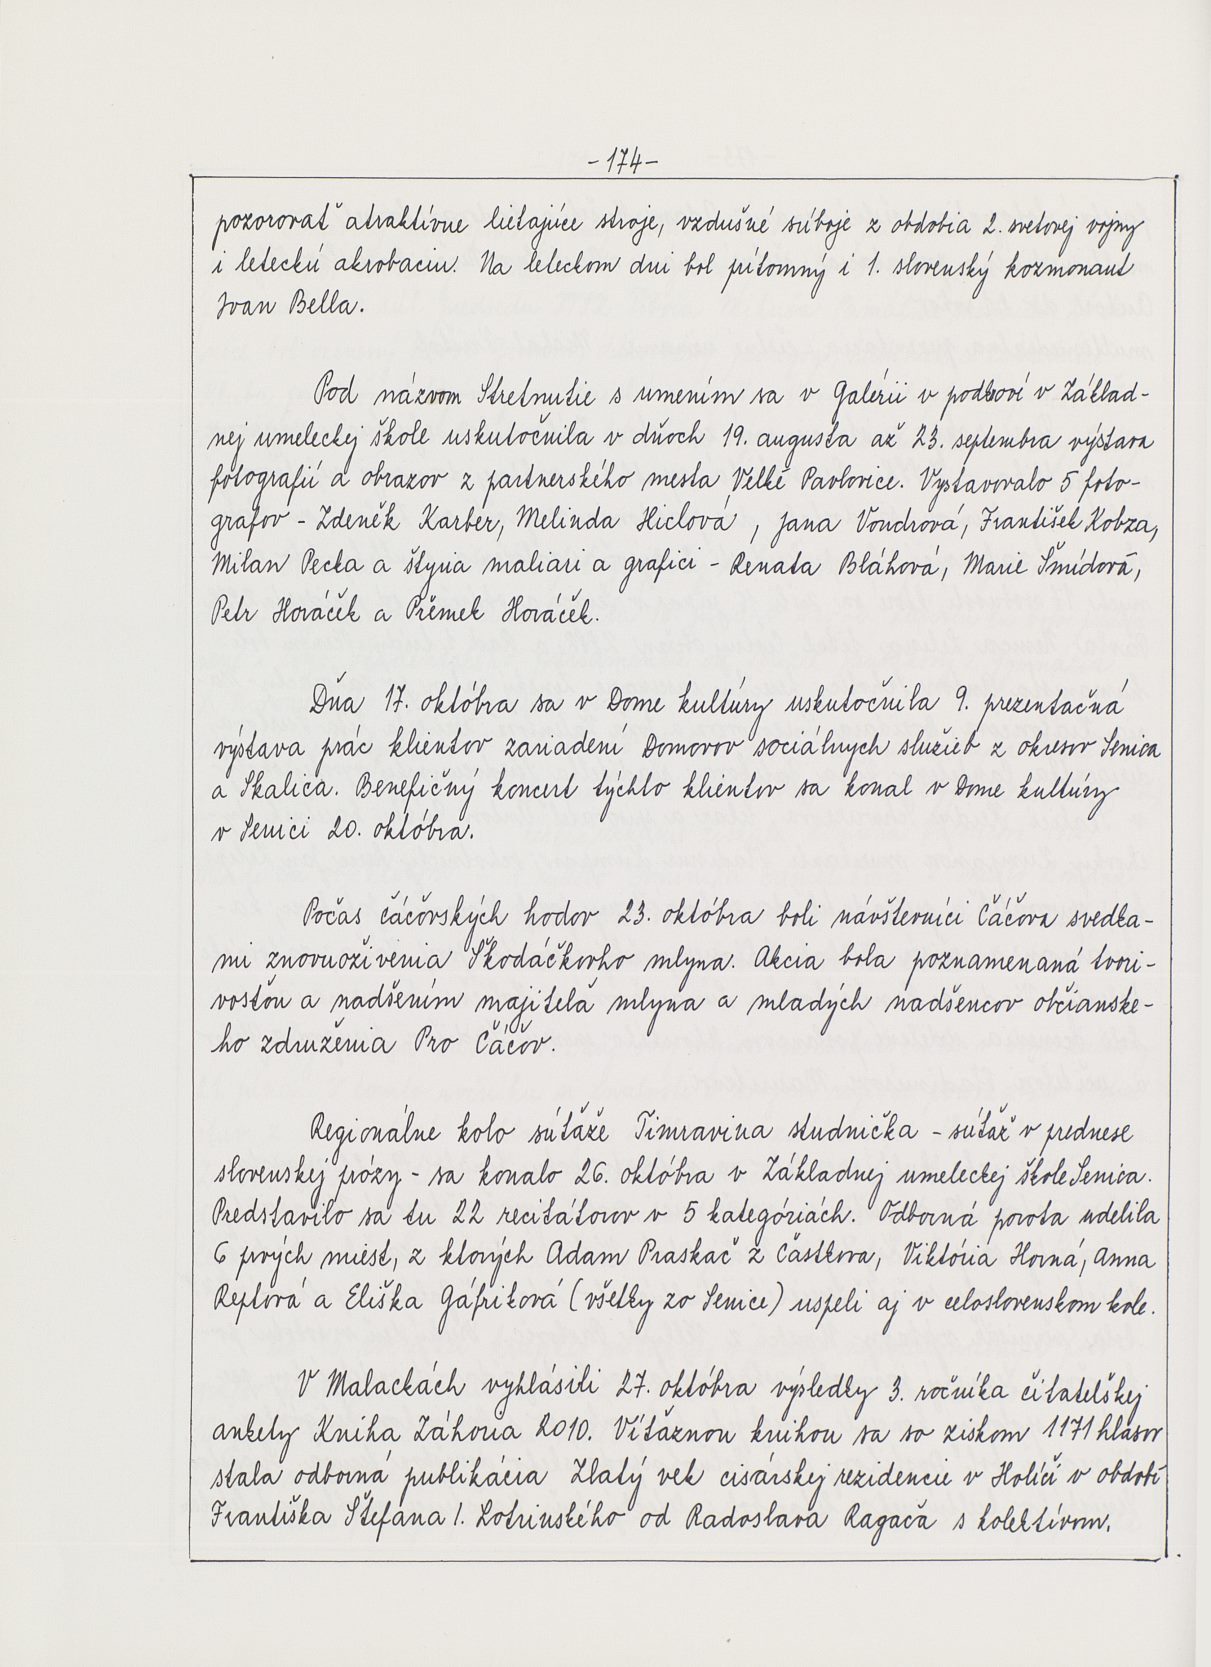 - 174 -
pozorovať atraktívne lietajúce stroje, vzdušné súboje z obdobia 2. svetovej vojny
i leteckú akrobaciu. Na leteckom dni bol prítomný i 1. slovenský kozmonaut
Ivan Bella.
Pod názvom Stretnutie s umením sa v Galérii v podkroví v Základ-
nej umeleckej škole uskutočnila v dňoch 19. augusta až 23. septembra výstava
fotografií a obrazov z partnerského mesta Velké Pavlovice. Vystavovalo 5 foto-
grafov - Zdeněk Karber, Melinda Hiclová, Jana Vondrová, František Kobza,
Milan Pecka a štyria maliari a grafici - Renata Bláhová, Marie Šmídová,
Petr Horáček a Přemek Horáček.
Dňa 17. októbra sa v Dome kultúry uskutočnila 9. prezentačná
výstava prác klientov zariadení Domovov sociálnych služieb z okresov Senica
a Skalica. Benefičný koncert týchto klientov sa konal v Dome kultúry
v Senici 20. októbra.
Počas čáčovských hodov 23. októbra boli návštevníci Čáčova svedka-
mi znovuoživenia Škodáčkovho mlyna. Akcia bola poznamenaná tvori-
vosťou a nadšením majiteľa mlyna a mladých nadšencov občianske-
ho združenia Pro Čáčov.
Regionálne kolo súťaže Timravina studnička - súťaž v prednese
slovenskej prózy - sa konalo 26. októbra v Základnej umeleckej škole Senica.
Predstavilo sa tu 22 recitátorov v 5 kategóriách. Odborná porota udelila
6 prvých miest, z ktorých Adam Praskač z Častkova, Viktória Horná, Anna
Replová a Eliška Gáfriková (všetky zo Senice) uspeli aj v celoslovenskom kole.
V Malackách vyhlásili 27. októbra výsledky 3. ročníka čitateľskej
ankety Kniha Záhoria 2010. Víťaznou knihou sa so ziskom 1171 hlasov
stala odborná publikácia Zlatý vek cisárskej rezidencie v Holíči v období
Františka Štefana I. Lotrinského od Radoslava Ragača s kolektívom.